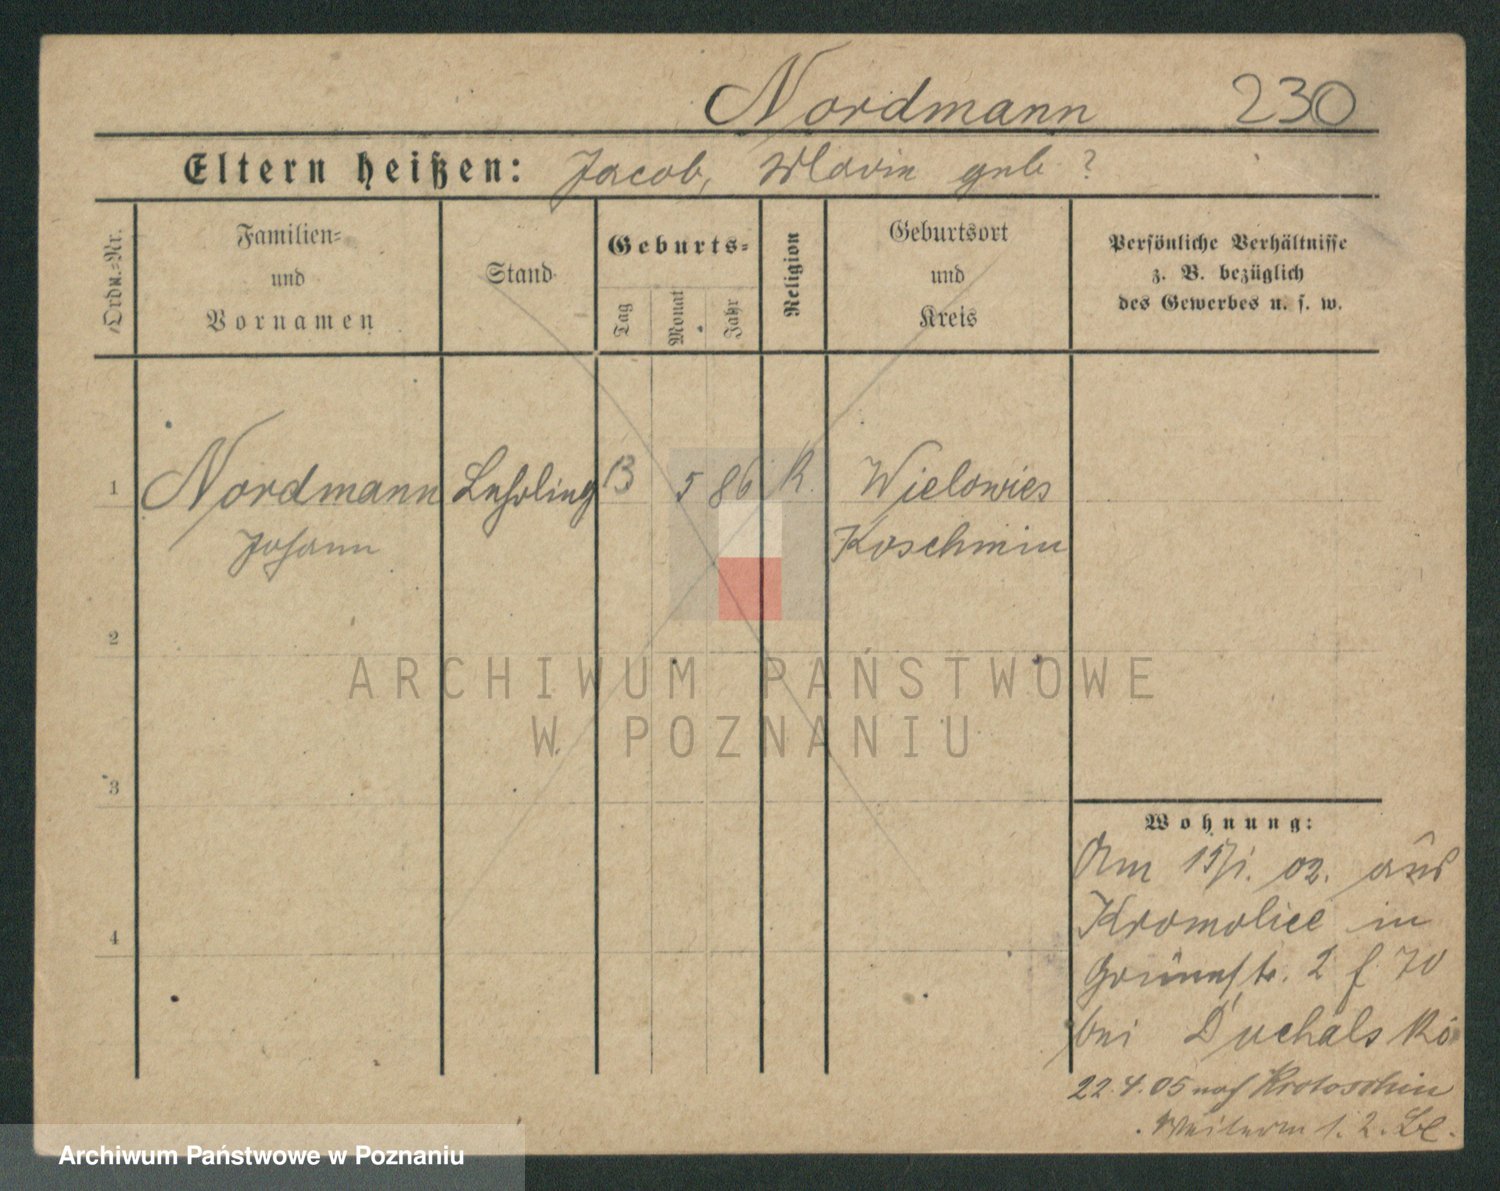 Nordmann 230
Eltern heißen: Jacob, Maria geb ?
Ordn.=Nr.
Familien=
und
Vornamen
Stand
Geburts=
Tag
Monat
Jahr
Religion
Geburtsort
und
Kreis
Persönliche Verhältnisse
z. B. bezüglich
des Gewerbes u. s. w.
1 Nordmann Lehrling 13 5 86 K. Wielowies
Johann Koschmin
2
3
4
Wohnung:
Am 15/1. 02. aus
Kromolice in
Grünestr. 2 f 70
bei Duchalski
22.4.05 nach Krotoschin
1. 2.
ARCHIWUM PAŃSTWOWE
W POZNANIU
Archiwum Państwowe w Poznaniu